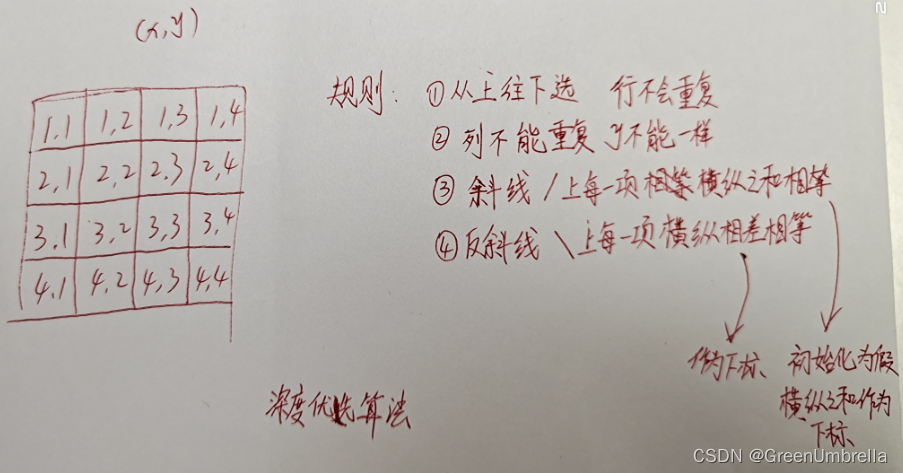 (x,y)
1,1 1,2 1,3 1,4
2,1 2,2 2,3 2,4
3,1 3,2 3,3 3,4
4,1 4,2 4,3 4,4
规则: ①从上往下选 行不会重复
②列不能重复 y不能一样
③斜线/上每一项相等 横纵之和相等
④反斜线\上每一项横纵相差相等
作为下标
初始化为假
横纵之和作为
下标
深度优先算法
2
CSDN @GreenUmbrella